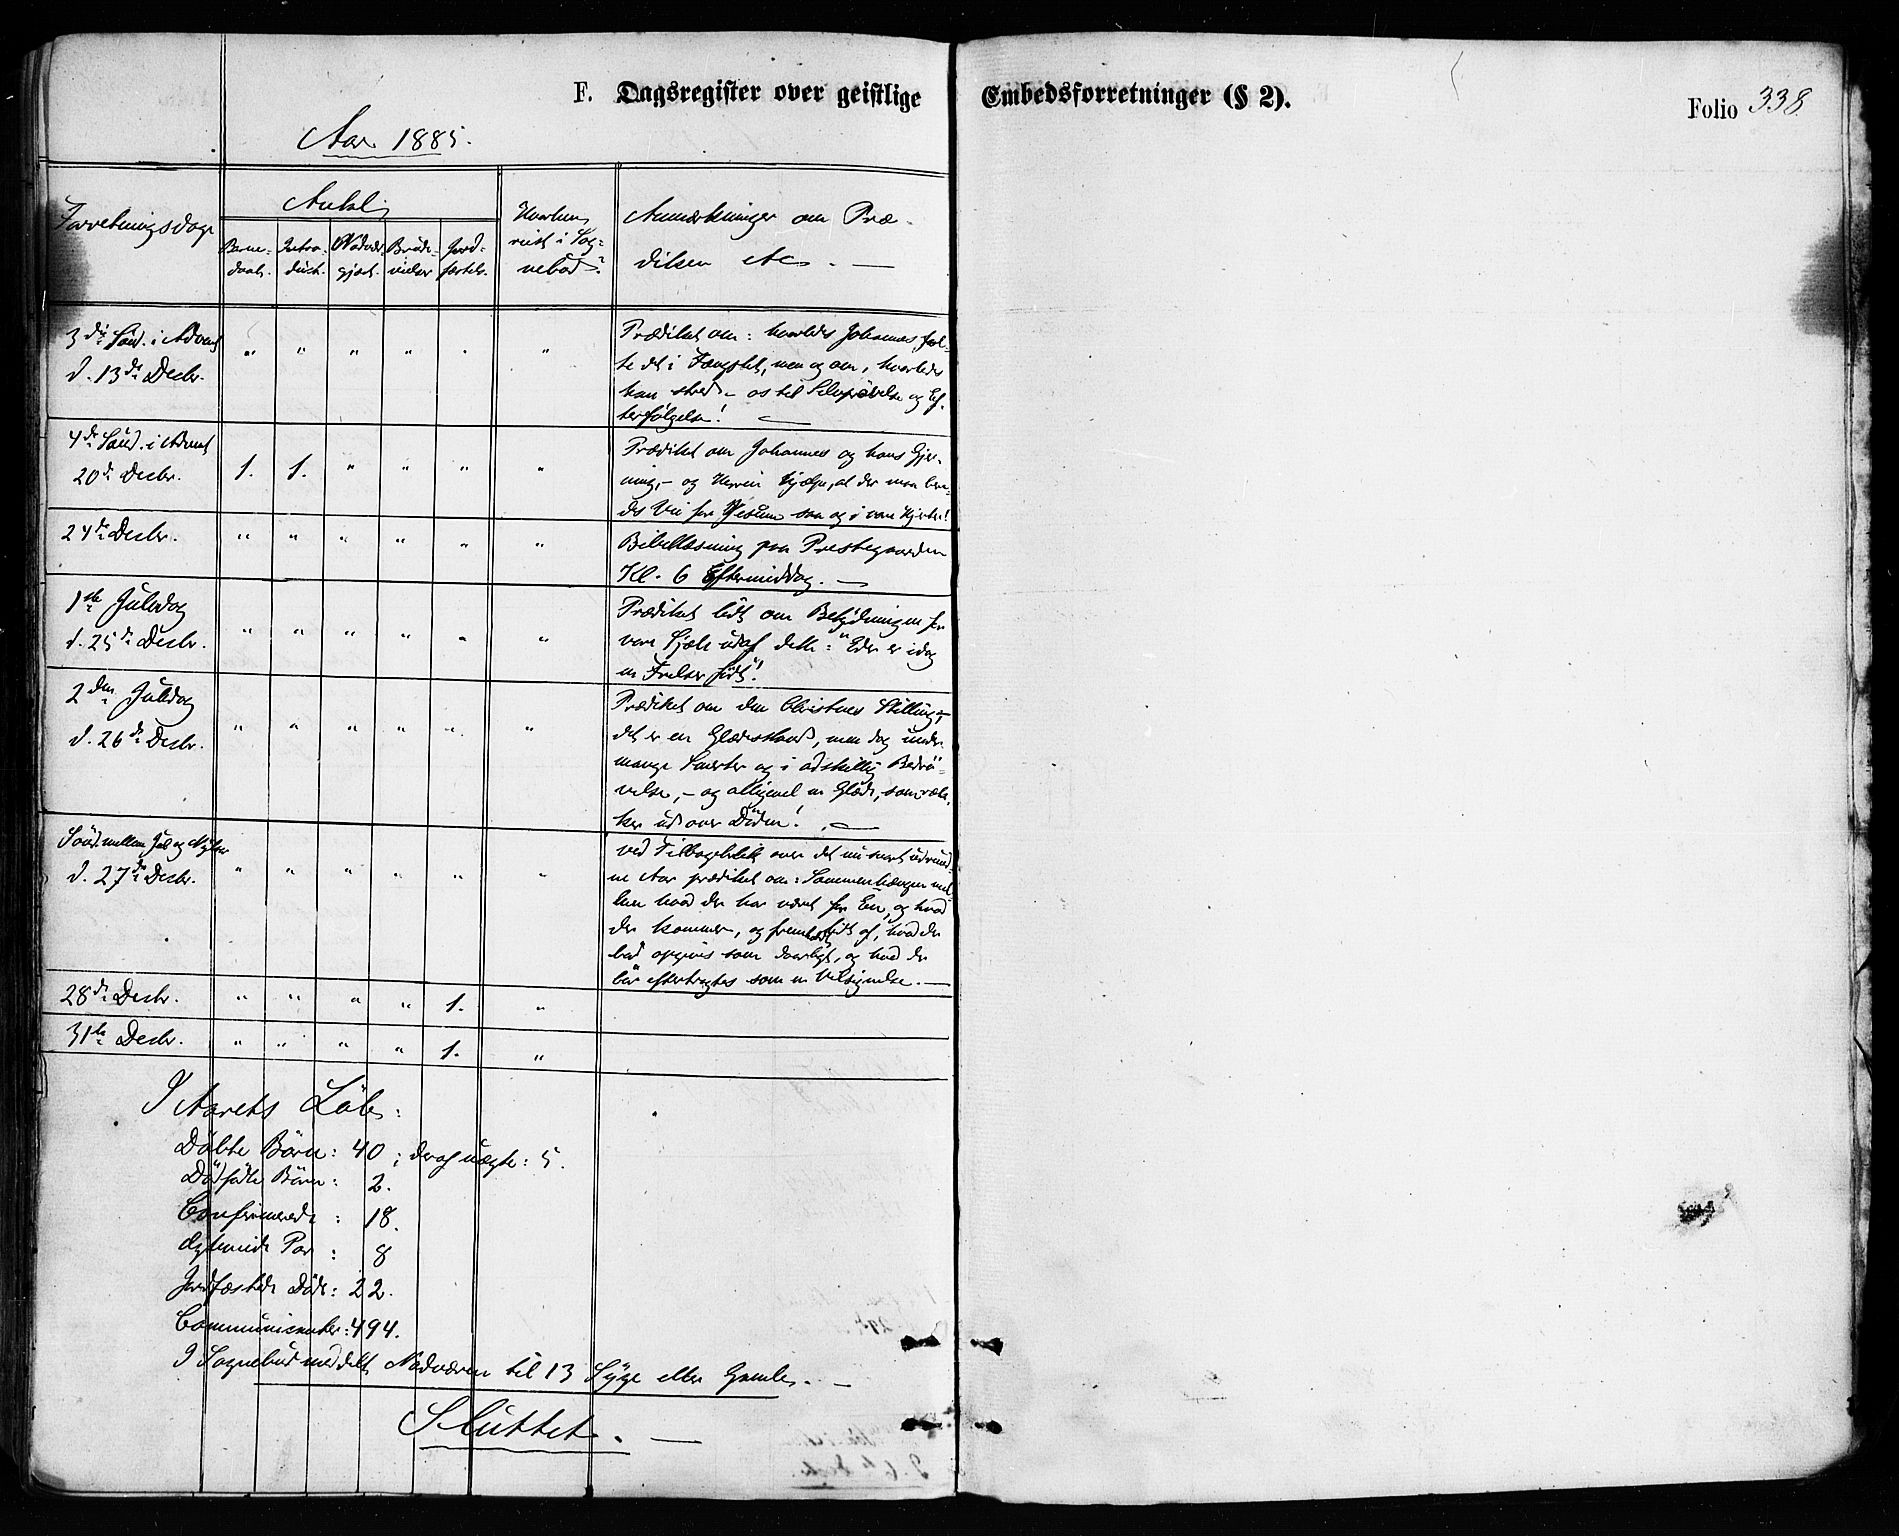 F. Dagsregister over geistlige Embedsforretninger (§ 2).
Folio 338.
Aar 1885.
Forretningsdage
Antal
Barne-
daab.
Intro-
duct.
Nadver-
gjæst.
Brude-
vielser
Jord-
fæstels.
Hvorhen
reist i Sog-
nebud?
Anmærkninger om Præ-
diken etc. —
3die Sønd. i Advent
d. 13de Decbr.
" " " " " "
Prædiket om: hvorledes Johannes føl-
te det i Fængslet, men og om, hvorledes
han stred – os til Selvprøvelse og Ef-
terfølgelse! —
4de Sønd. i Advent
20de Decbr.
1. 1. " " " "
Prædiket om Johannes og hans Gjer-
ning, – og Herren hjælpe, at der maa bere-
des Vei for Jesum saa og i vore Hjerter!
24de Decbr.
" " " " " "
Bibellæsning paa Prestegaarden
Kl. 6 Eftermiddag. —
1ste Juledag
d. 25de Decbr.
" " " " " "
Prædiket lidt om Betydningen for
vore Sjæle udaf dette: "Eder er idag
en Frelser født"!
2den Juledag
d. 26de Decbr.
" " " " " "
Prædiket om den Christnes Stilling, –
det er en Glædesstand, men dog under
mange Smerter og i adskillig Bedrø-
velse, – og alligevel en Glæde, som ræk-
ker ud over Døden! —
Sønd. mellem Jul og Nytaar
d. 27de Decbr.
" " " " " "
ved Tilbageblik over det nu snart udrund-
ne Aar prædiket om: Sammenhængen mel-
lem hvad der har været for En, og hvad
der kommer, og fremholdt af, hvad der
bød opgives som daarligt, og hvad der
bør eftertragtes som en Velsignelse. —
28de Decbr.
" " " " 1. "
31te Decbr.
" " " " 1. "
I Aarets Løb:
Døbte Børn: 40; deraf uægte: 5.
Dødfødte Børn: 2.
Confirmerede: 18.
Ægteviede Par: 8
Jordfæstede Døde: 22.
Communicanter: 494.
I Sognebud meddelt Nadveren til 13 Syge eller Gamle. —
Sluttet. —